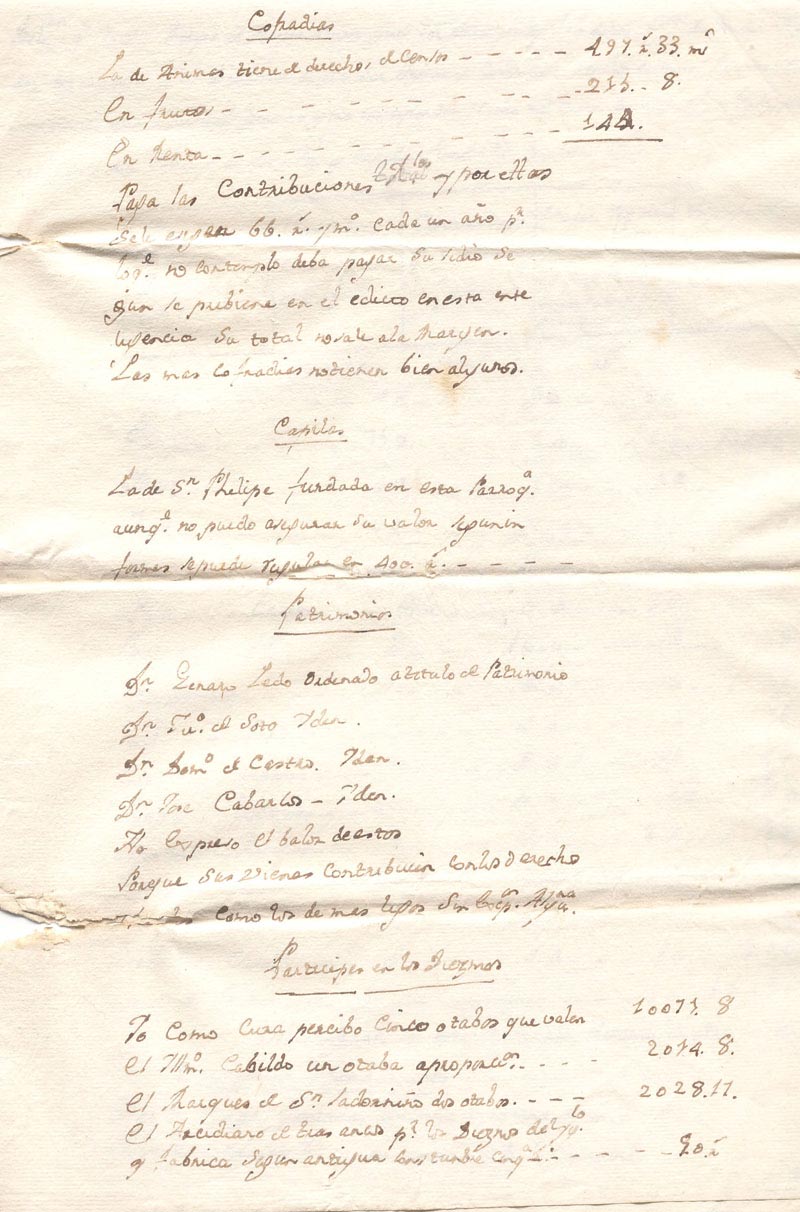 Cofradias
La de Animas tiene de derechos de Censos - - - - - 497. r. 33. mrs
En frutos - - - - - - - - - 215. - 8.
En Renta - - - - - - - - 144.
Paga las Contribuciones y por ellas
Se le exigen 66. r. y mo. cada un año pr.
lo qe. no contemplo deba pagar Subsidio Se
gun se prebiene en el edicto en esta inte
ligencia Su total no sale ala Margen.
Las mas Cofradias no tienen bien algunos.
Capillas
La de Sn. Phelipe fundada en esta Parroqa.
aunqe. no puedo asegurar su valor segun in
formes se puede regular en 400. r. - - - -
Patrimonios
Dn. Genaro Ledo Ordenado a titulo de Patrimonio
Dn. Fco. de Soto Yden.
Dn. Domo. de Castro. Yden.
Dn. Jose Cabarcos - Yden.
No Espreso el balor de estos
Porque Sus Vienes Contribuien con los derecho
como los demas legos Sin Excepn. Alguna.
Participes en los Diezmos
Yo Como Cura percibo Cinco otabos que valen 10071. 8
El Yllmo. Cabildo un otabo a proporcon. - - - 2014. 8.
El Marques de Sn. Sadorniño dos otabos. - - - 2028. 17.
El Arcidiano de tras ancos pr. los Diezmos del
y fabrica Segun antigua Constumbre - - - - - 90. r